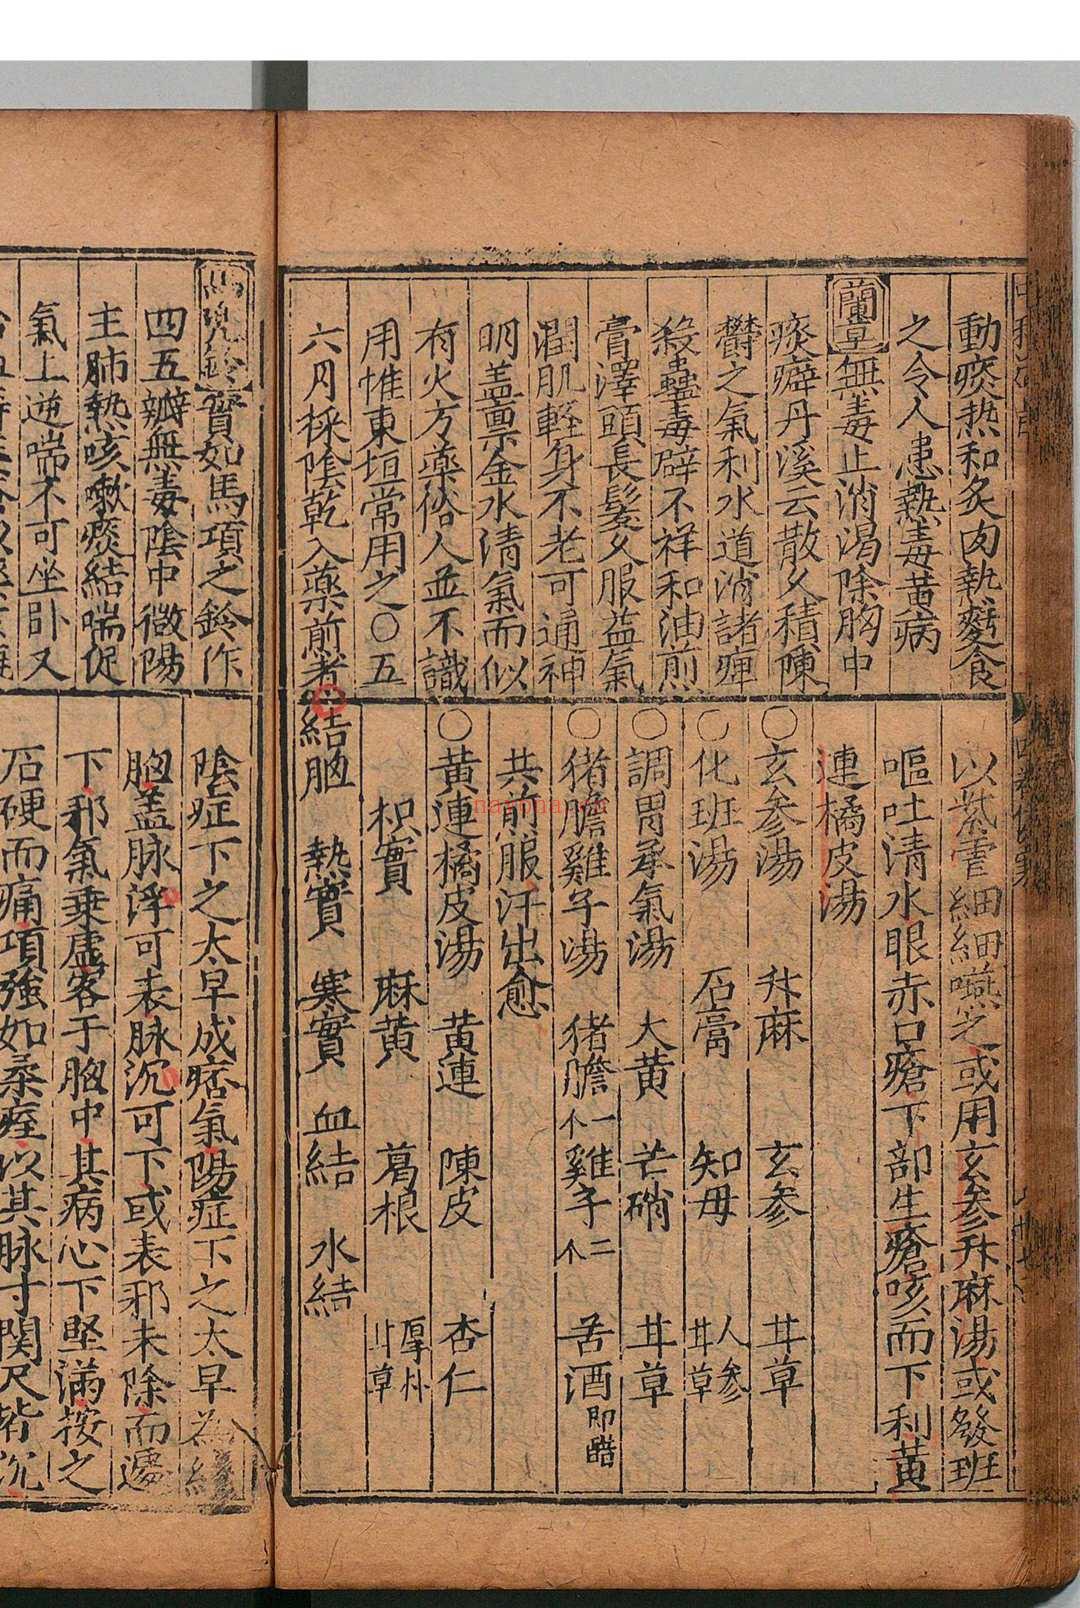 動痰热和炙肉熱麪食
之令人患熱毒黃病
蘭草無毒止消渴除胸中
痰癖丹溪云散久積陳
欝之氣利水道消諸痺
殺蠱毒辟不祥和油煎
膏澤頭長髮久服益氣
潤肌軽身不老可通神
明盖禀金水清氣而似
有火方藥俗人並不識
用惟東垣常用之〇五
六月採陰乾入藥煎煮
以紫雪細細嚥之或用玄參升麻湯或發班
嘔吐清水眼赤口瘡下部生瘡咳而下利黃
連橘皮湯
〇玄参湯 升麻 玄参 甘草
〇化班湯 石膏 知母 人参 甘草
〇調胃承氣湯 大黄 芒硝 甘草
〇猪膽雞子湯 猪膽一个 雞子二个 苦酒即醋
共煎服汗出愈
〇黄連橘皮湯 黄連 陳皮 杏仁
枳實 麻黄 葛根 厚朴 甘草
結胸 熱實 寒實 血結 水結
馬兜鈴實如馬項之鈴作
四五瓣無毒陰中微陽
主肺熱咳嗽痰結喘促
氣上逆喘不可坐卧又
陰症下之太早成痞氣陽症下之太早為結
胸盖脉浮可表脉沉可下或表邪未除而遽
下邪氣乗虚客于胸中其病心下堅滿按之
石硬而痛項強如柔痓以其脉寸関尺皆沉
nanonan.cn